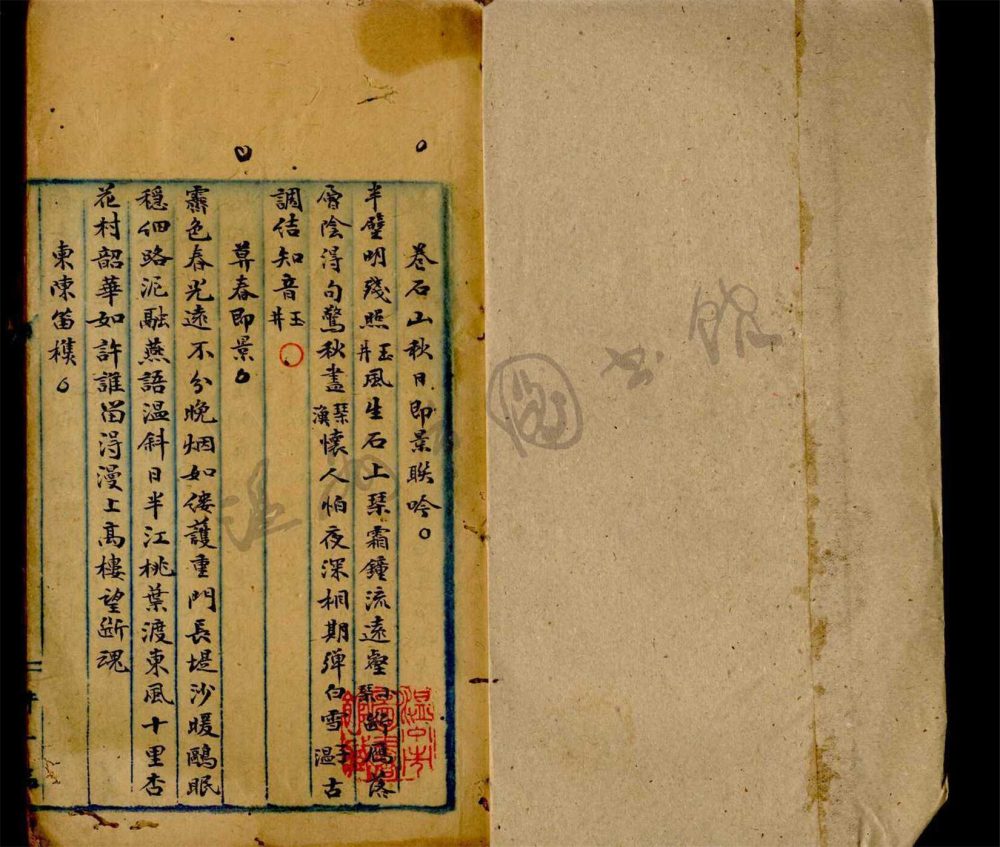 卷石山秋日即景聯吟。
半壁明殘照玉井風生石上琴霜鐘流遠壑歸鴈落
層陰得句驚秋盡琹懷人怕夜深相期彈白雪子温古
調佶知音玉井〇
暮春即景。
霽色春光遠不分晚烟如縷護重門長堤沙暖鷗眠
穩細路泥融燕語温斜日半江桃葉渡東風十里杏
花村韶華如許誰留得漫上高樓望斷魂
東陳笛樓。
温州图书馆